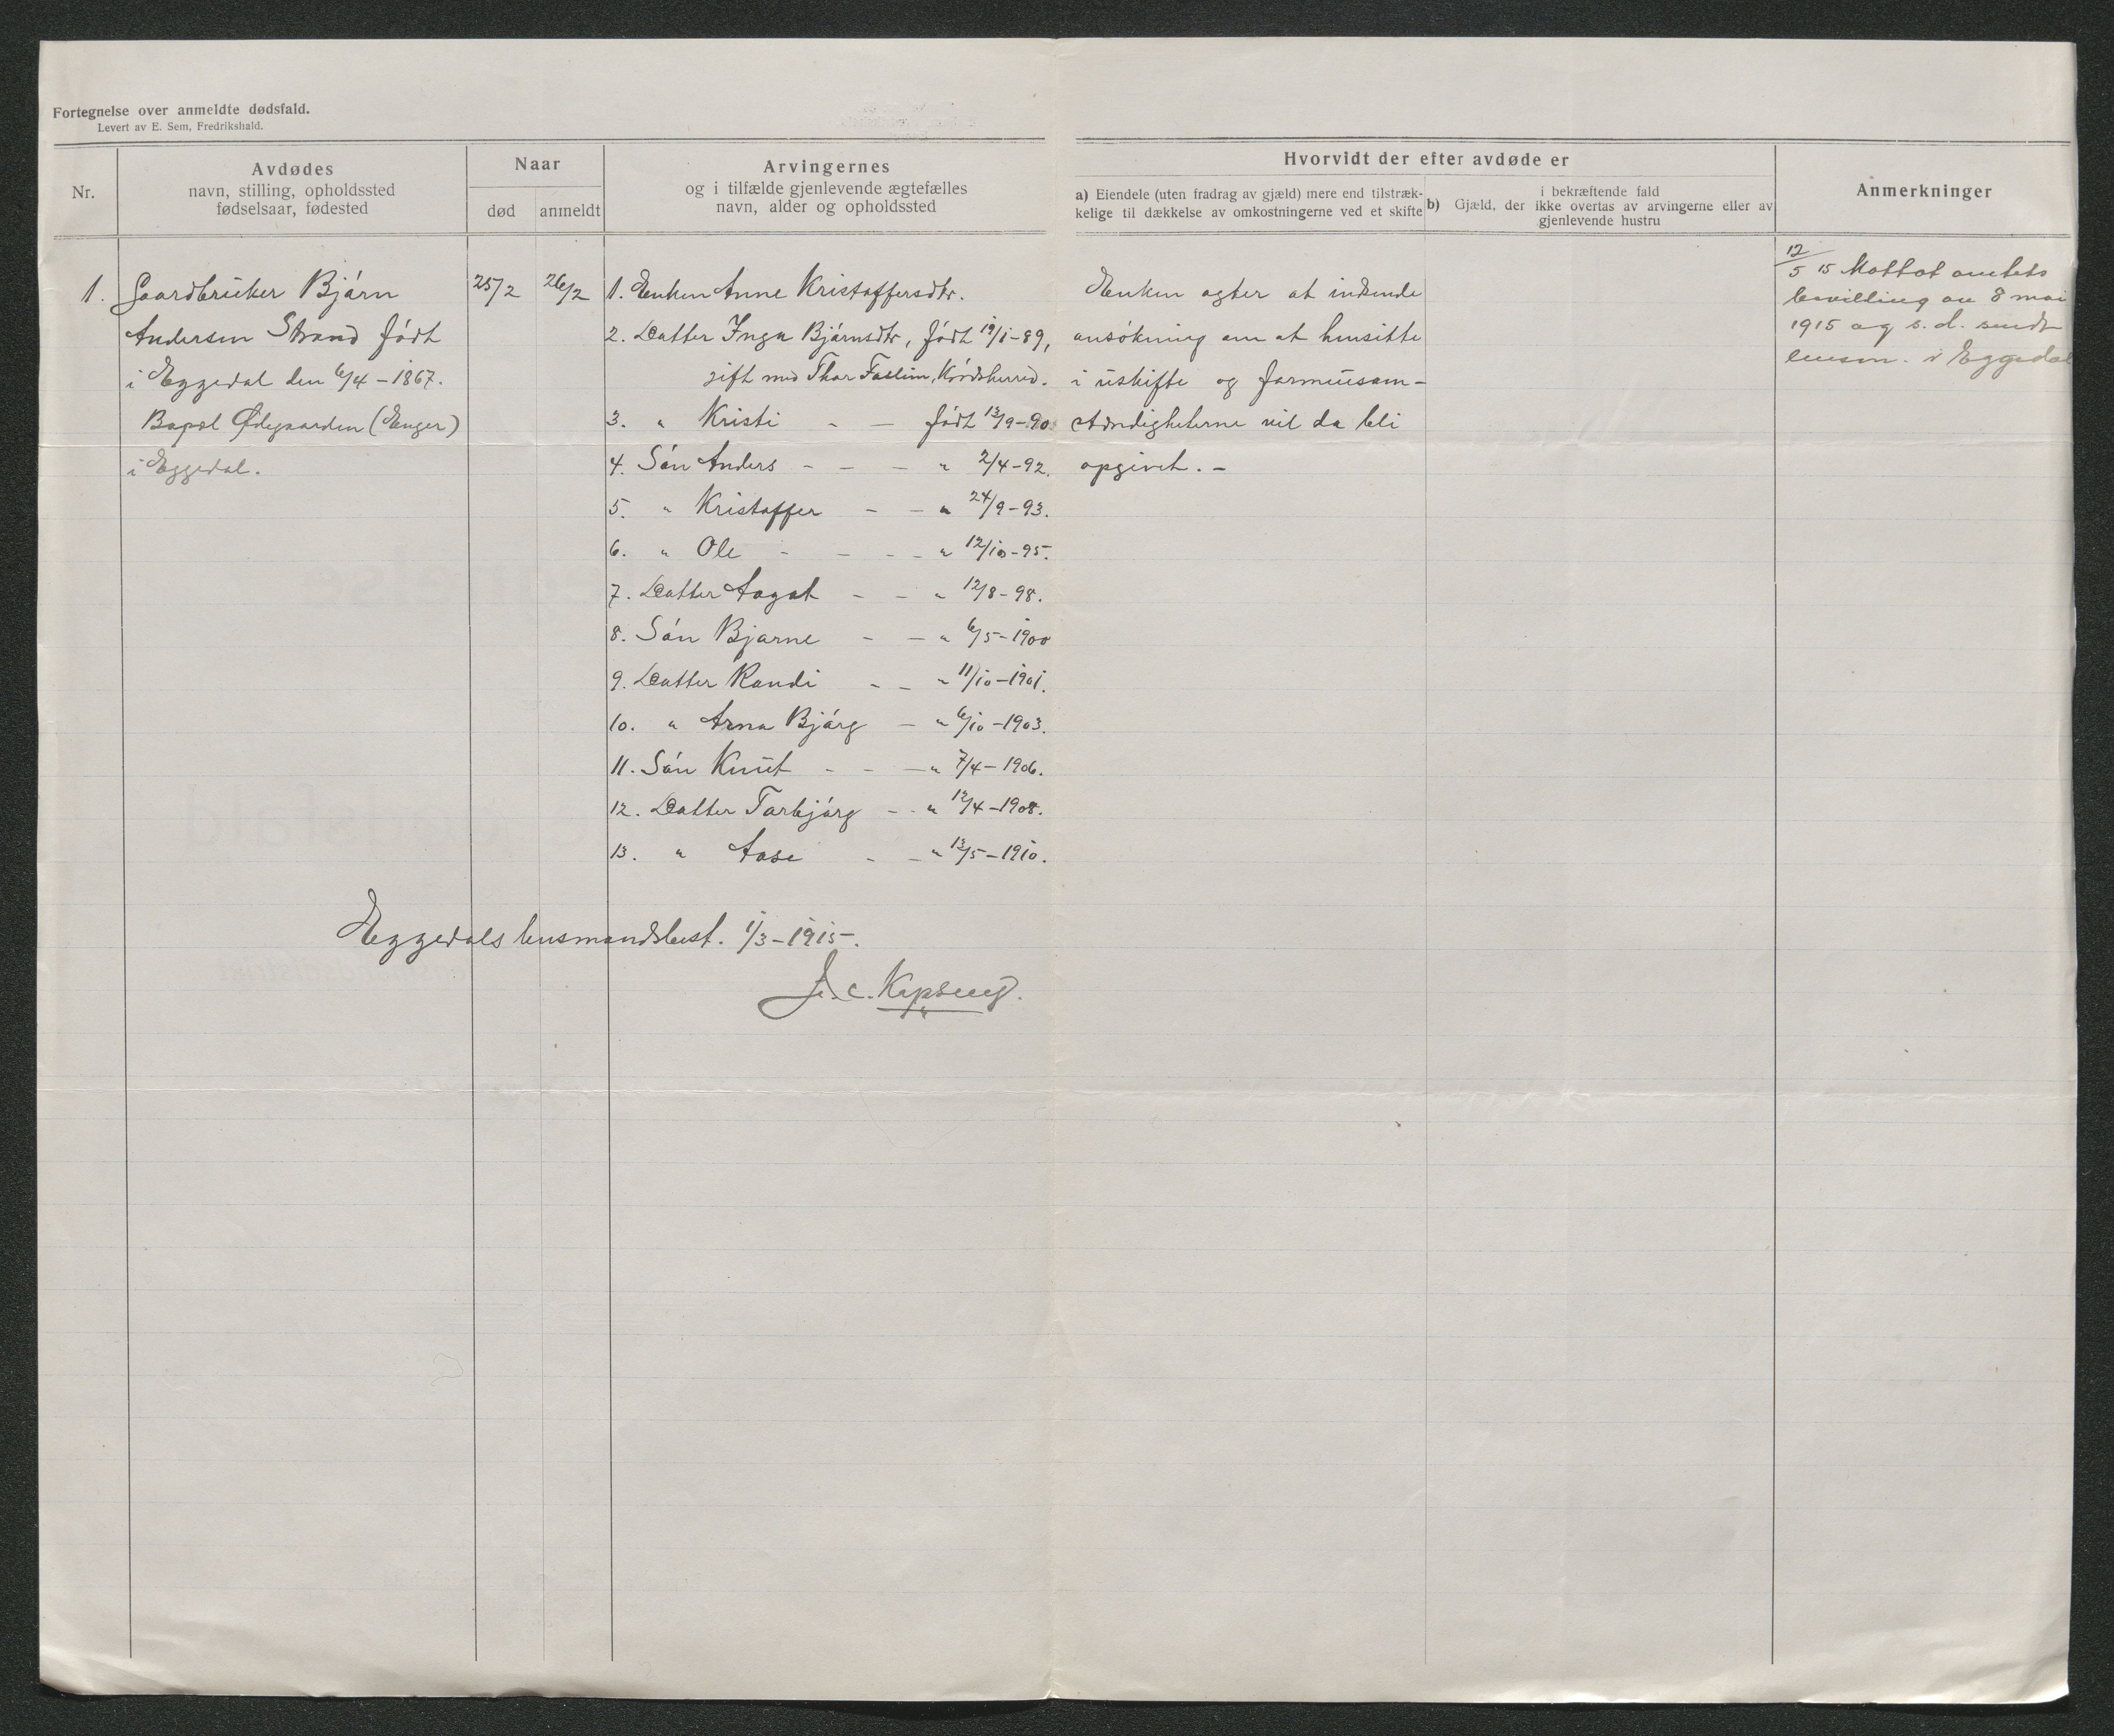 Fortegnelse over anmeldte dødsfald.
Levert av E. Sem, Fredrikshald.
Nr.
Avdødes
navn, stilling, opholdssted
fødselsaar, fødested
Naar
død
anmeldt
Arvingernes
og i tilfælde gjenlevende ægtefælles
navn, alder og opholdssted
Hvorvidt der efter avdøde er
a) Eiendele (uten fradrag av gjæld) mere end tilstræk-
kelige til dækkelse av omkostningerne ved et skifte
i bekræftende fald
b) Gjæld, der ikke overtas av arvingerne eller av
gjenlevende hustru
Anmerkninger
1.
Gaardbruker Bjørn
Andersen Strand født
i Eggedal den 6/4 - 1867.
Bopæl Ødegaarden (Enger)
i Eggedal.
25/2
26/2
1. Enken Anne Kristoffersdtr.
2. Datter Inga Bjørnsdtr, født 19/1-89,
gift med Thor Foslien, Krødsherred.
3. " Kristi - - født 13/9-90.
4. Søn Anders - - - " 2/4-92.
5. " Kristoffer - - " 24/9-93.
6. " Ole - - - - " 12/10-95.
7. Datter Aagot - - " 12/8-98.
8. Søn Bjarne - - " 6/5-1900
9. Datter Randi - - " 11/10-1901.
10. " Arna Bjørg - " 6/10-1903.
11. Søn Knut - - - " 7/4-1906.
12. Datter Torbjørg - - " 12/4-1908.
13. " Aase - - " 13/5-1910.
Enken agter at indsende
ansøkning om at hensitte
i uskifte og formuesom-
stændigheterne vil da bli
opgivet. -
12/5 15 Mottat amtets
bevilling av 8 mai
1915 og s. d. sendt
lensm. i Eggedal
Eggedals lensmandsbest. 1/3-1915.